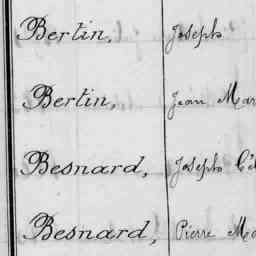 Bertin, Joseph
Bertin, Jean Mar
Besnard, Joseph Cé
Besnard, Pierre Ma